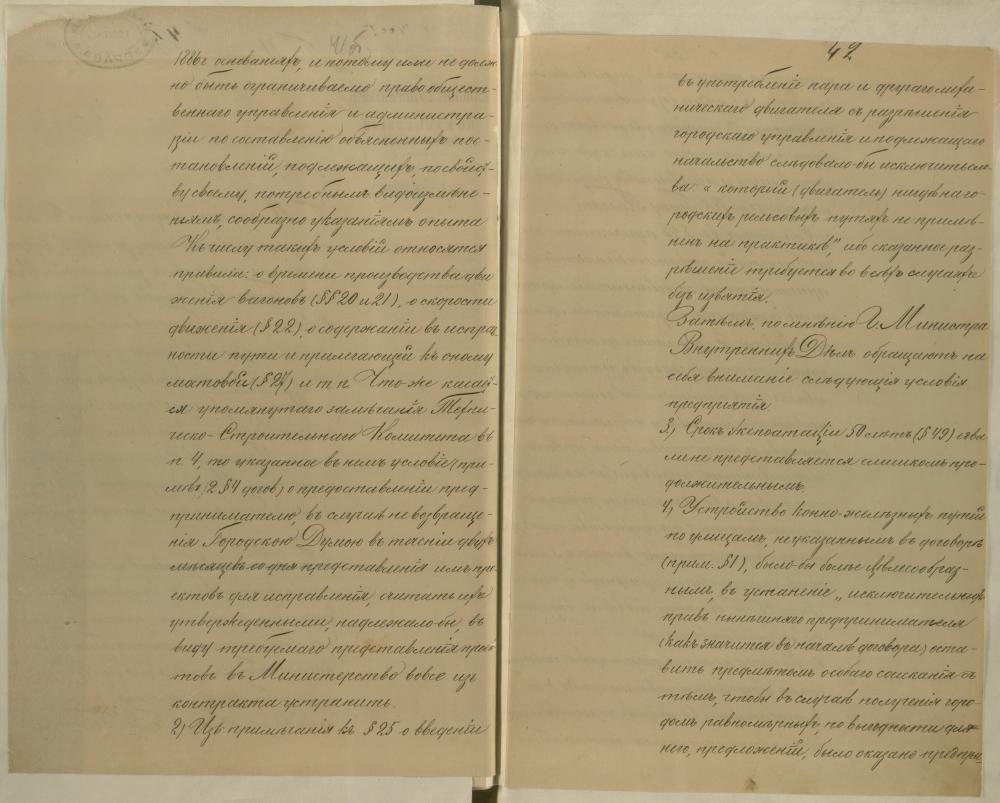 41б.
1886г основаніяхъ, и потому ими не долж-
но быть ограничиваемо право общест-
веннаго управленія и администра-
ціи по составленію объясненныхъ пос-
тановленій, подлежащихъ, по свойст-
ву своему, потребнымъ видоизмѣне-
ніямъ, сообразно указаніямъ опыта
Къ числу такихъ условій относятся
правила: о времени производства дви
женія вагоновъ (§§ 20 и 21), о скорости
движенія (§ 22), о содержаніи въ исправ
ности пути и прилегающей къ оному
мостовой (§ 27) и т. п. Что-же касает-
ся упомянутаго замѣчанія Техни-
ческо-Строительнаго Комитета въ
п. 4, то указанное въ немъ условіе (при-
2 § 4 догов) о предоставленіи пред-
принимателю, въ случаѣ невозвраще-
нія Городскою Думою въ теченіи двухъ
мѣсяцевъ со дня представленія имъ про
ектовъ для исправленія, считать ихъ
утвержденными, надлежало-бы, въ
виду требуемаго представленія проэк
товъ въ Министерство вовсе изъ
контракта устранить.
2) Изъ примѣчанія къ § 25 о введеніи
42
въ употребленіе пара и другаго меха-
ническаго двигателя съ разрѣшенія
городскаго управленія и подлежащаго
начальства слѣдовало-бы исключить сло-
ва: „который (двигатель) нигдѣ на го-
родскихъ рельсовыхъ путяхъ не примѣ-
ненъ на практикѣ", ибо сказанное раз-
рѣшеніе требуется во всѣхъ случаяхъ
безъ изъятія.
Затѣмъ, по мнѣнію Г. Министра
Внутреннихъ Дѣлъ обращаютъ на
себя вниманіе слѣдующія условія
предпріятія
3) Срокъ експоатаціи 50 лѣтъ (§ 49) едва
ли не представляется слишкомъ про-
должительнымъ.
4) Устройство конно-желѣзныхъ путей
по улицамъ, неуказаннымъ въ договорѣ
(прим. § 1), было-бы болѣе цѣлесообраз-
нымъ, въ устаненіе „исключительныхъ
правъ нынѣшняго предпринимателя
(какъ значится въ началѣ договора) оста-
вить предметомъ особаго соисканія съ
тѣмъ, чтобы въ случаѣ полученія горо-
домъ равномѣрныхъ, по выгодности для
него, предложеній, было оказано предпри-